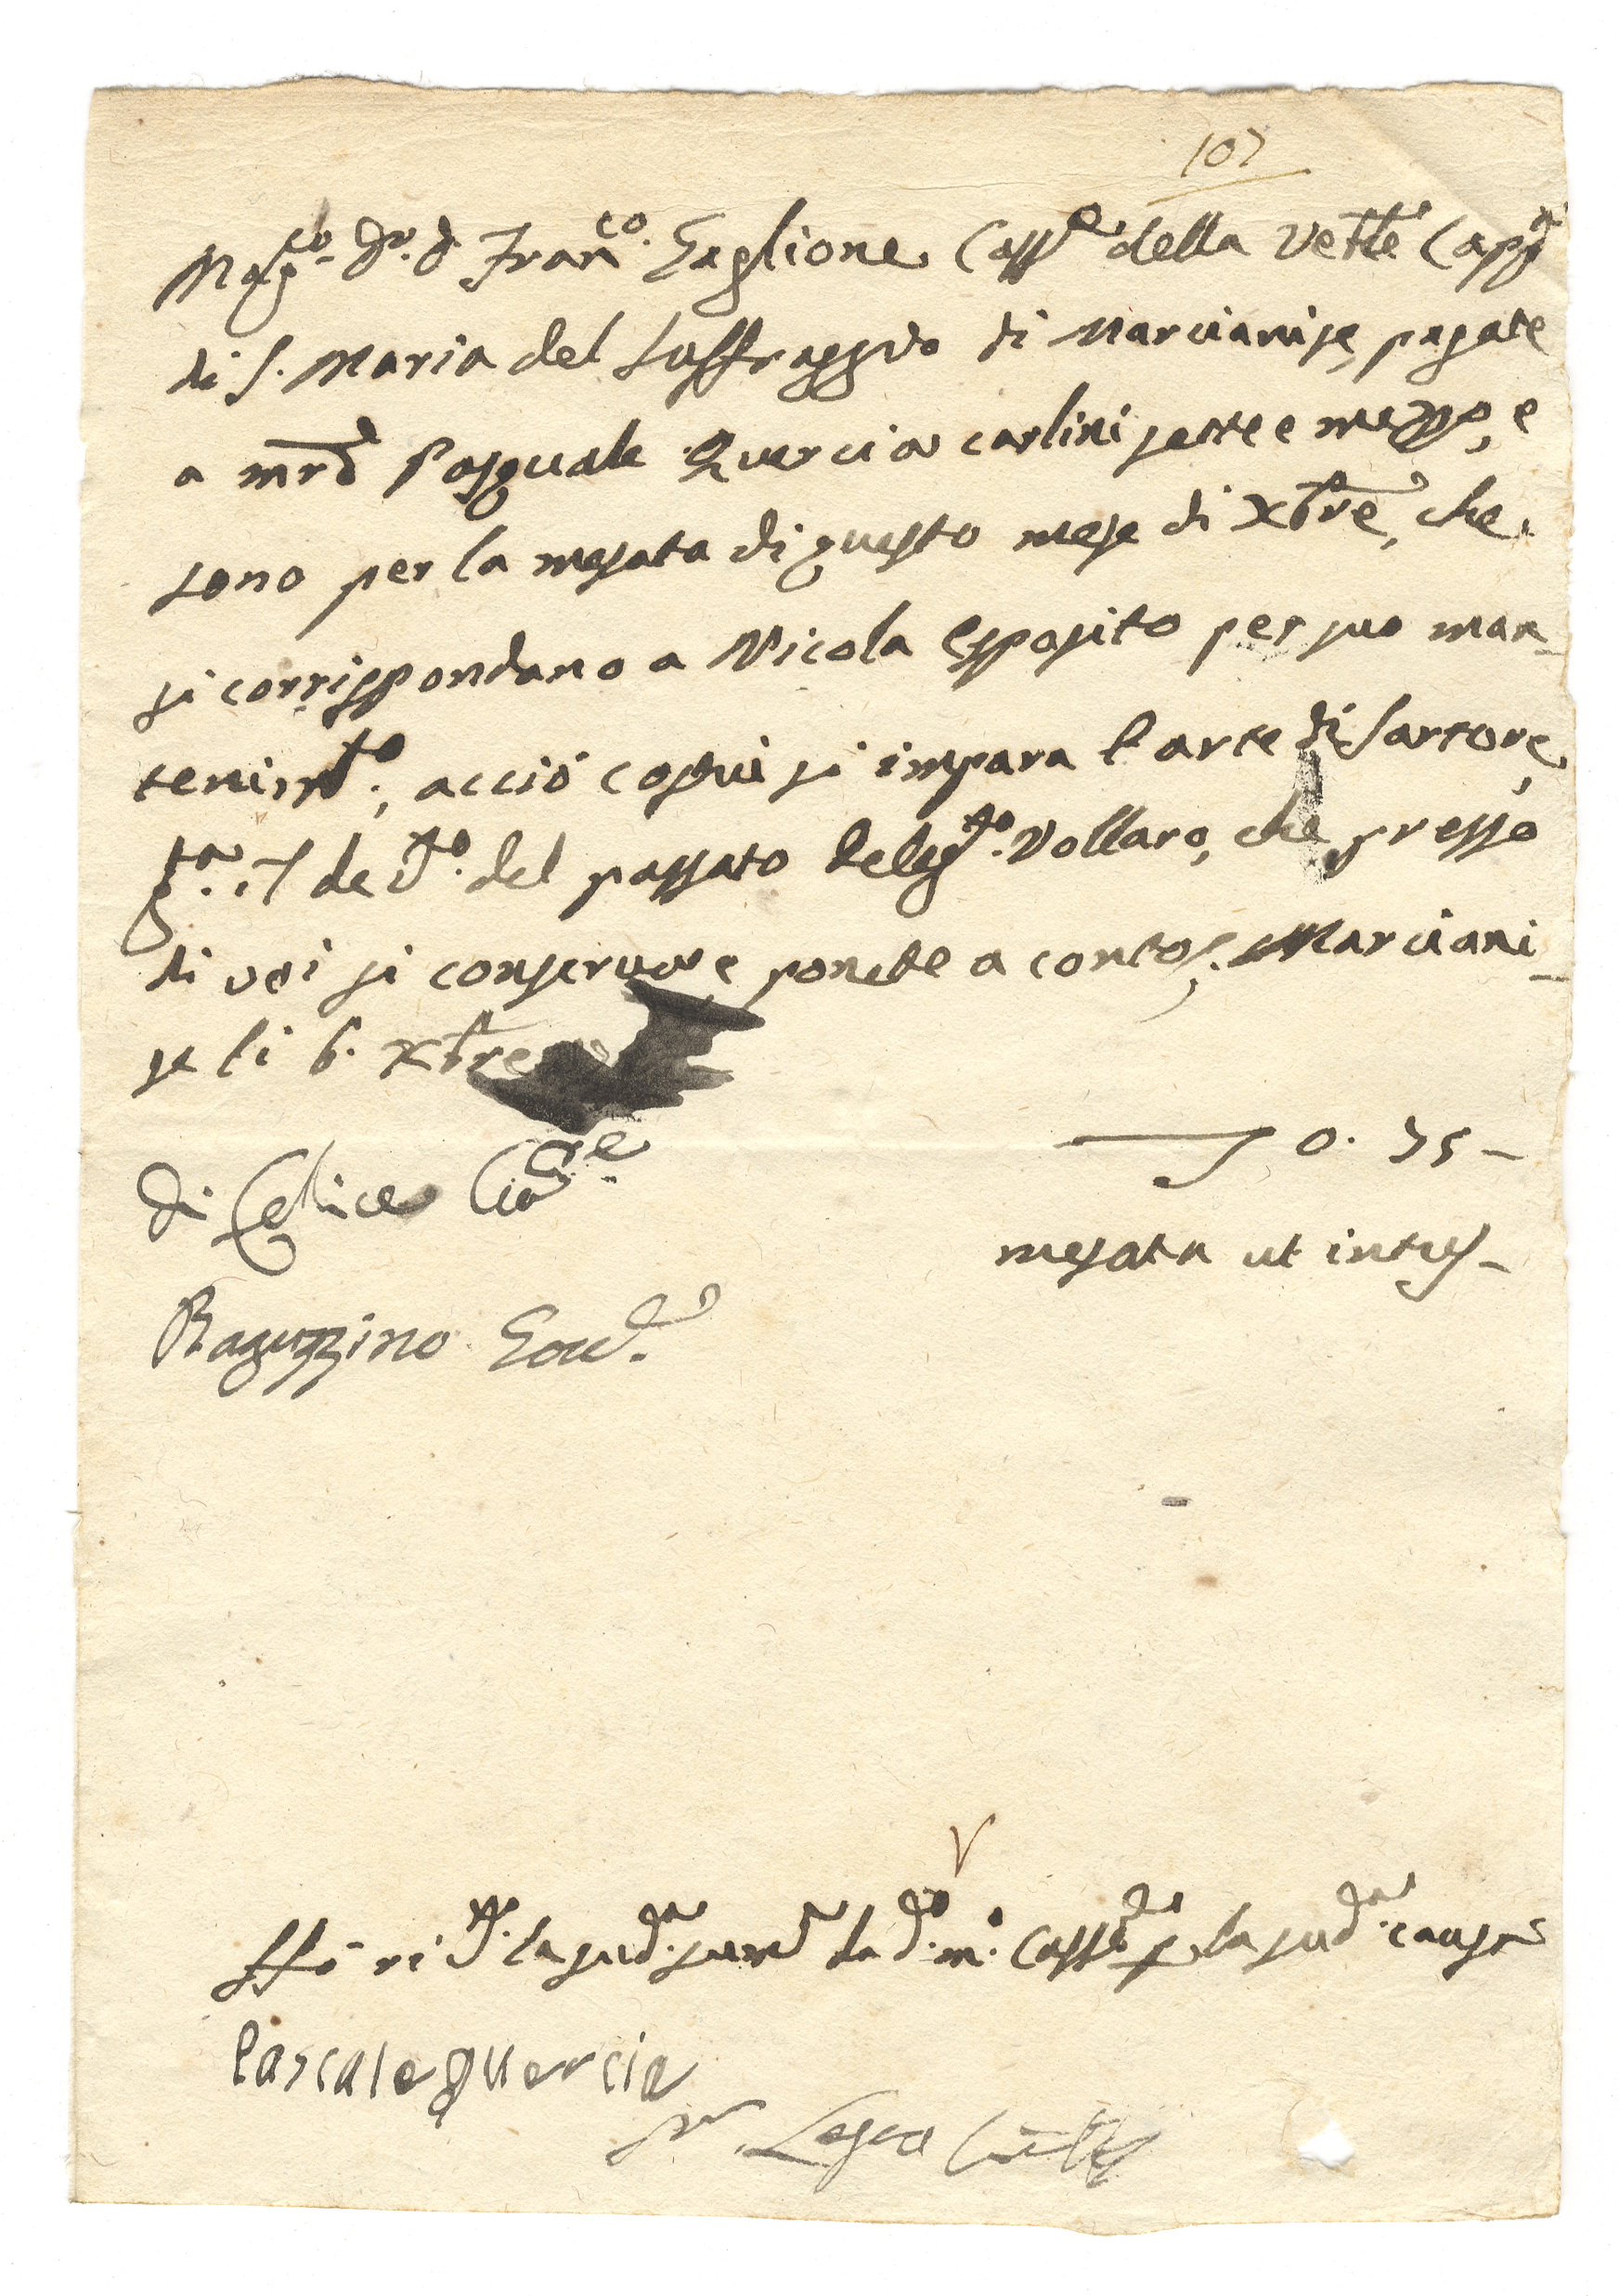 107
Mag.co Dr. d. Fran.co Gaglione Cass.e della Ven.le Capp.a
di S. Maria del Suffraggio di Marcianise, pagate
a mro Pasquale Quercia carlini sette e mezzo, e
sono per la mesata di questo mese di Xbre, che
si corrispondano a Nicola Esposito per suo man-
tenim.to, acciò costui si impara l'arte di Sartore,
g.ta il de.to del passato Deleg.to Vollaro, che presso
di voi si conserva, e ponete a conto. Marciani-
se li 6. Xbre
di Felice
0. 75 -
mesata ut intus -
Raguzzino
ho ri.to la sud.a sum.a da d.o m.o Cass.e p la sud.a causa
Pascale quercia